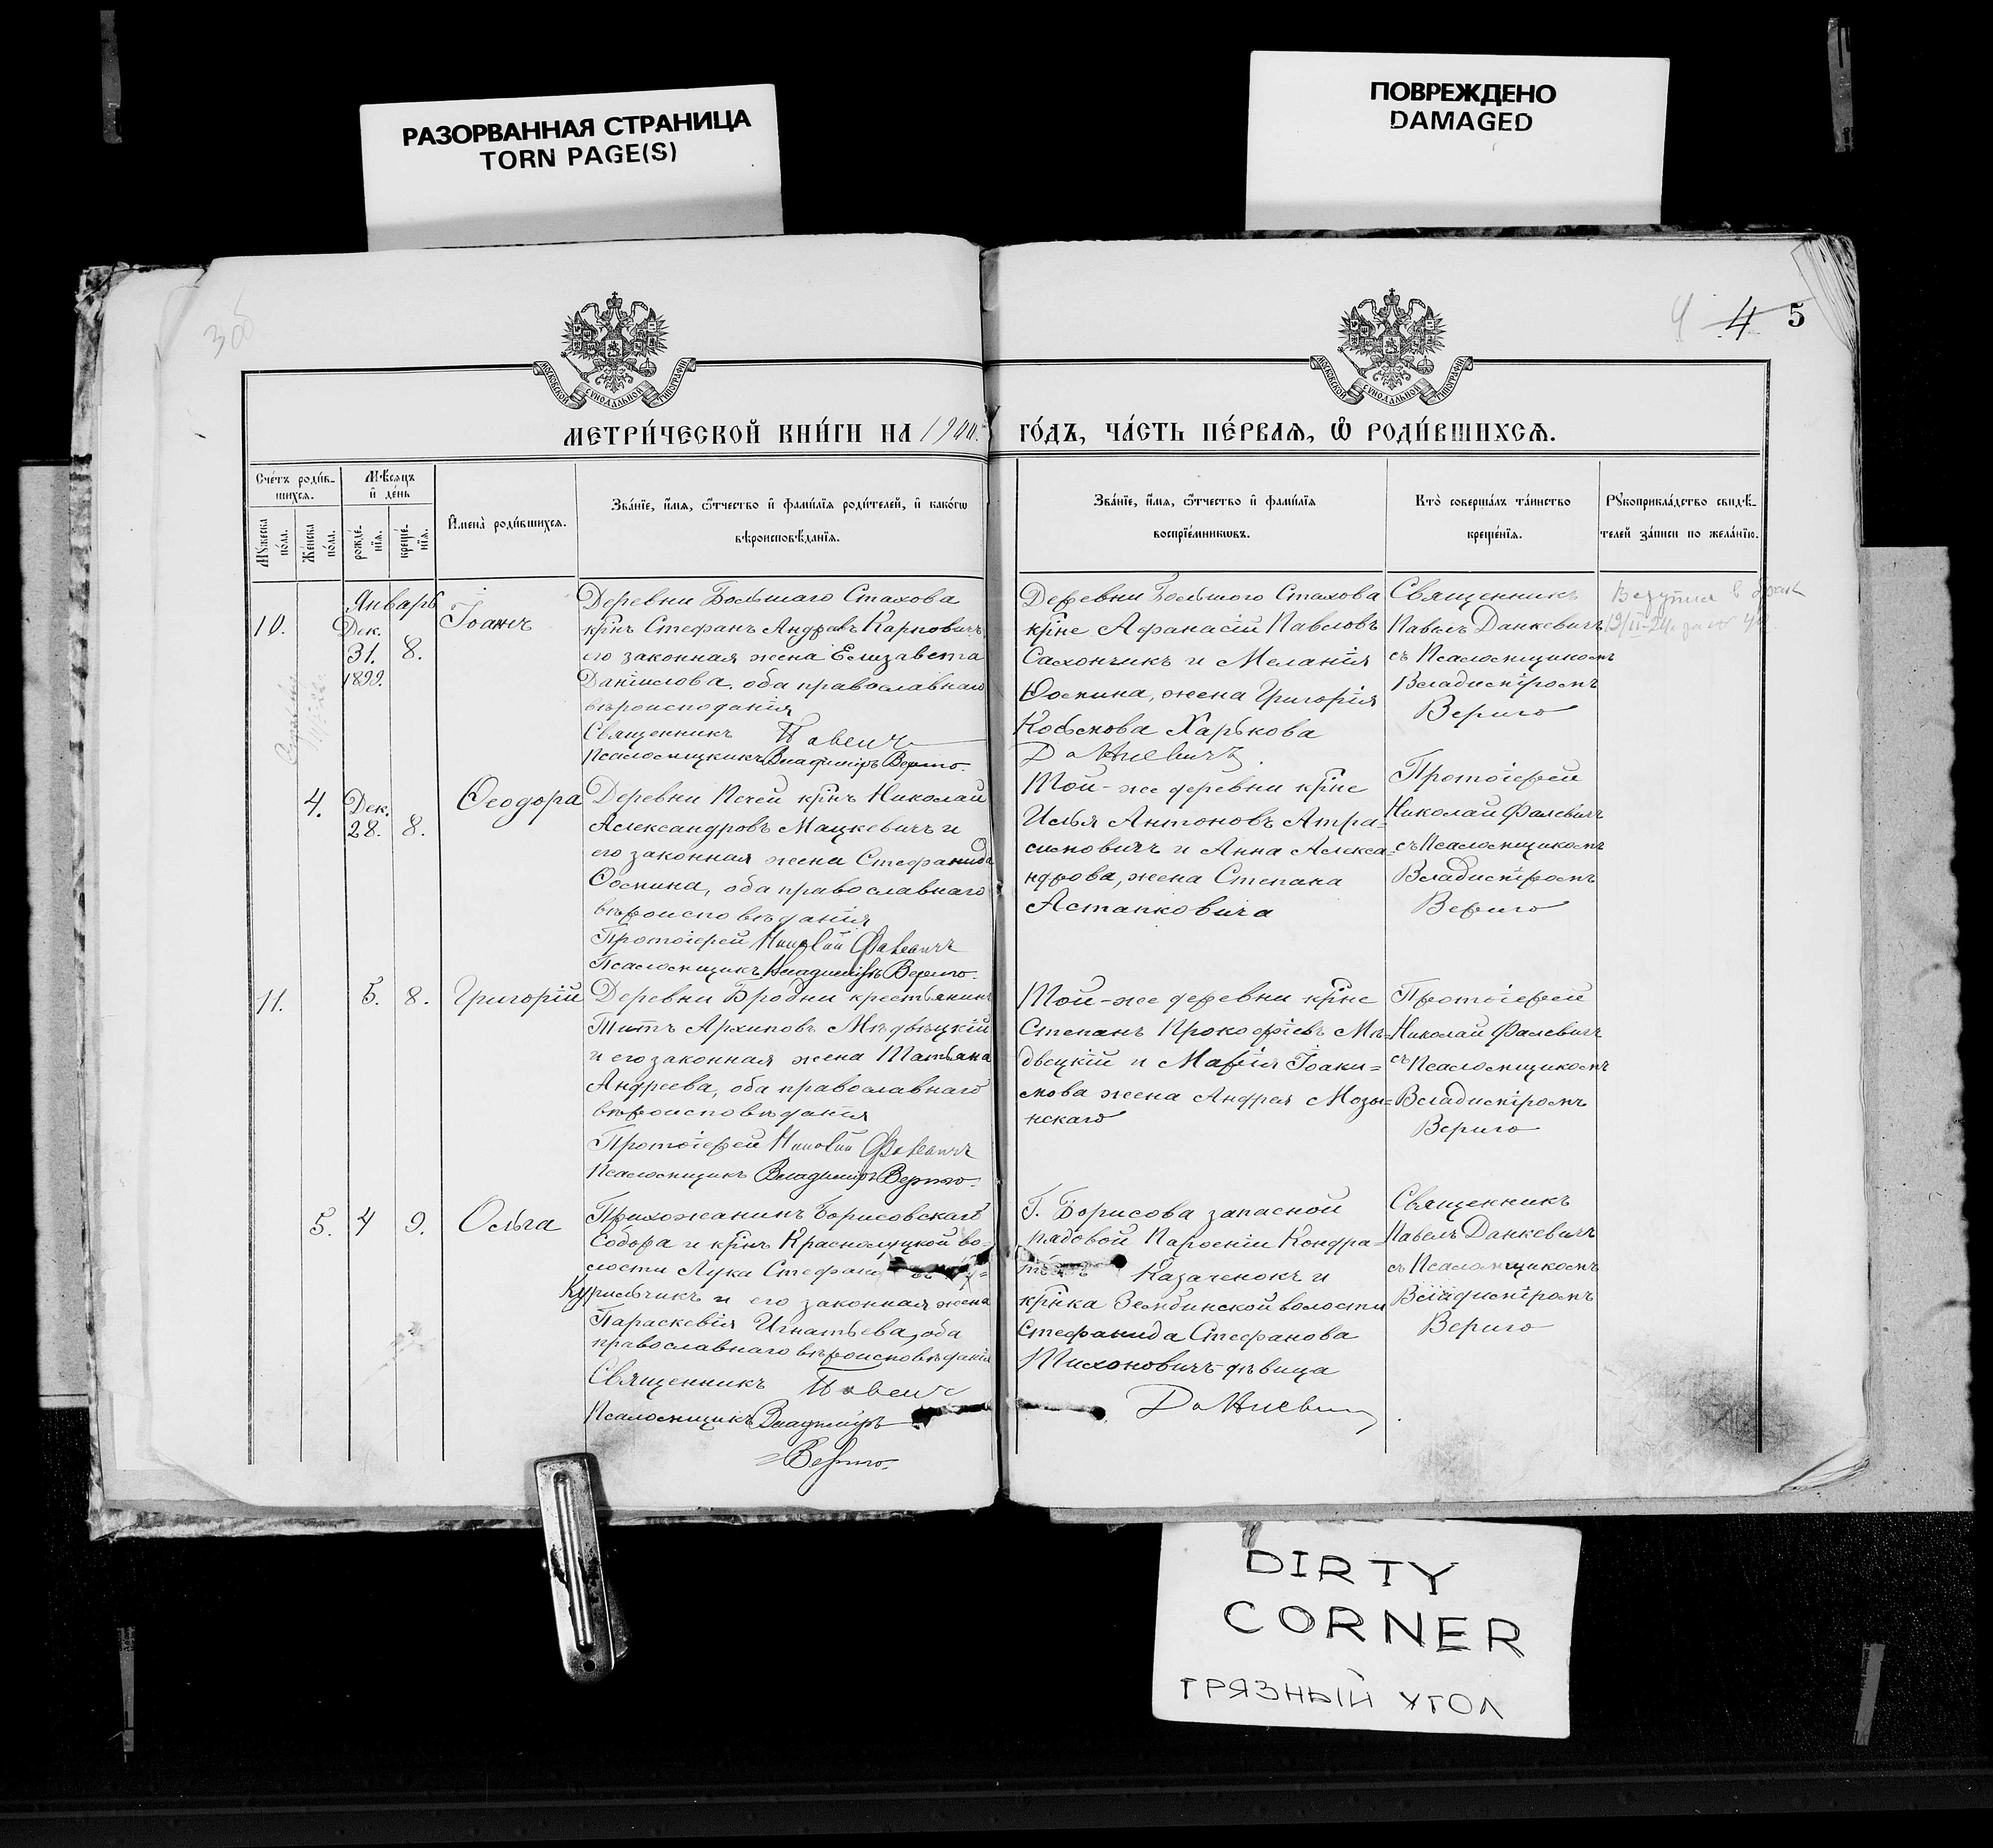 РАЗОРВАННАЯ СТРАНИЦА
TORN PAGE(S)
ПОВРЕЖДЕНО
DAMAGED
4 4 5
МЕТРИ́ЧЕСКОЙ КНИ́ГИ НА 1900 ГО́ДЪ, ЧА́СТЬ ПЕ́РВАѦ, Ѡ РОДИ́ВШИХСѦ.
Сче́тъ роди́в-
шихся.
Мꙋ́жеска по́ла.
Же́нска по́ла.
Мѣ́сяцъ и де́нь
рожде́-
нїя.
креще́-
нїя.
И́мена̀ роди́вшихся.
Зва́нїе, и́мя, ѻ́тчество и фамі́лїя роди́телей, и како́гѡ
вѣроисповѣ́данїя.
Зва́нїе, и́мя, ѻ́тчество и фамі́лїя
воспрїе́мникѡвъ.
Кто̀ соверша́лъ та́инство
креще́нїя.
Рꙋкоприкла́дство свидѣ́-
телей за́писи по жела́нїю.
Январь
10.
Дек.
31.
1899.
8.
Іоаннъ
Деревни Большаго Стахова
крнъ Стефанъ Андреевъ Карповичъ
его законная жена Елизавета
Даніилова, оба православнаго
Священникъ Павелъ
Псаломщикъ Владиміръ Вериго.
Деревни Большого Стахова
кріне Афанасій Павловъ
Сахончикъ и Меланія
Ѳомина, жена Григорія
Харькова
Данкевичъ.
Священникъ
Павелъ Данкевичъ
съ Псаломщикомъ
Владиміромъ
Вериго
4.
Дек.
28.
8.
Ѳеодора
Деревни Печей крнъ Николай
Александровъ Мацкевичъ и
его законная жена Стефанида
Ѳомина, оба православнаго
вѣроисповѣданія
Протоіерей Николай Фалевичъ
Псаломщикъ Владиміръ Вериго.
Той-же деревни кріне
Илья Антоновъ Атра=
симовичъ и Анна Алекса=
ндрова, жена Степана
Астапковича
Протоіерей
Николай Фалевичъ
съ Псаломщикомъ
Владиміромъ
Вериго
11.
5.
8.
Григорій
Деревни Бродни крестьянинъ
Титъ Архиповъ Мѣдвѣцкій
и его законная жена Татьяна
Андреева, оба православнаго
вѣроисповѣданія
Протоіерей Николай Фалевичъ
Псаломщикъ Владиміръ Вериго.
Той-же деревни кріне
Степанъ Прокофіевъ Мѣ=
двецкій и Марія Іоаки=
мова жена Андрея Мозы=
нскаго
Протоіерей
Николай Фалевичъ
съ Псаломщикомъ
Владиміромъ
Вериго
5.
4
9.
Ольга
Прихожанинъ Борисовскаго
Собора и крнъ Краснолуцкой во=
лости Лука Стефано
Курильчикъ и его законная жена
Параскевія Игнатьева, оба
православнаго вѣроисповѣданія
Священникъ Павелъ
Псаломщикъ Владиміръ
=Вериго.
Г. Борисова запасной
рядовой Кондра=
Казаченокъ и
крінка Зембинской волости
Стефанида Стефанова
Тихоновичъ дѣвица
Данкевичъ
Священникъ
Павелъ Данкевичъ
съ Псаломщикомъ
Владиміромъ
Вериго
DIRTY
CORNER
ГРЯЗНЫЙ УГОЛ